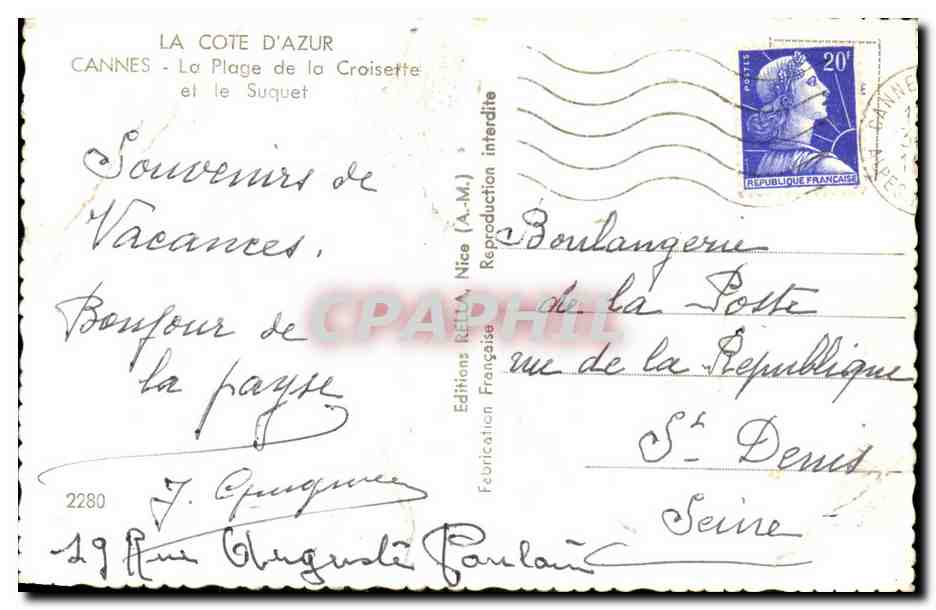 LA COTE D'AZUR
CANNES - La Plage de la Croisette
et le Suquet
Souvenirs de
Vacances.
Bonjour de
la payse
2280
J.
19 Rue Auguste Poulain
Editions RELLA, Nice (A.-M.)
Fabrication Française Reproduction interdite
CPAPHIL
POSTES
20F
REPUBLIQUE FRANÇAISE
CANNES
ALPES
Boulangerie
de la Poste
rue de la République
St Denis
Seine